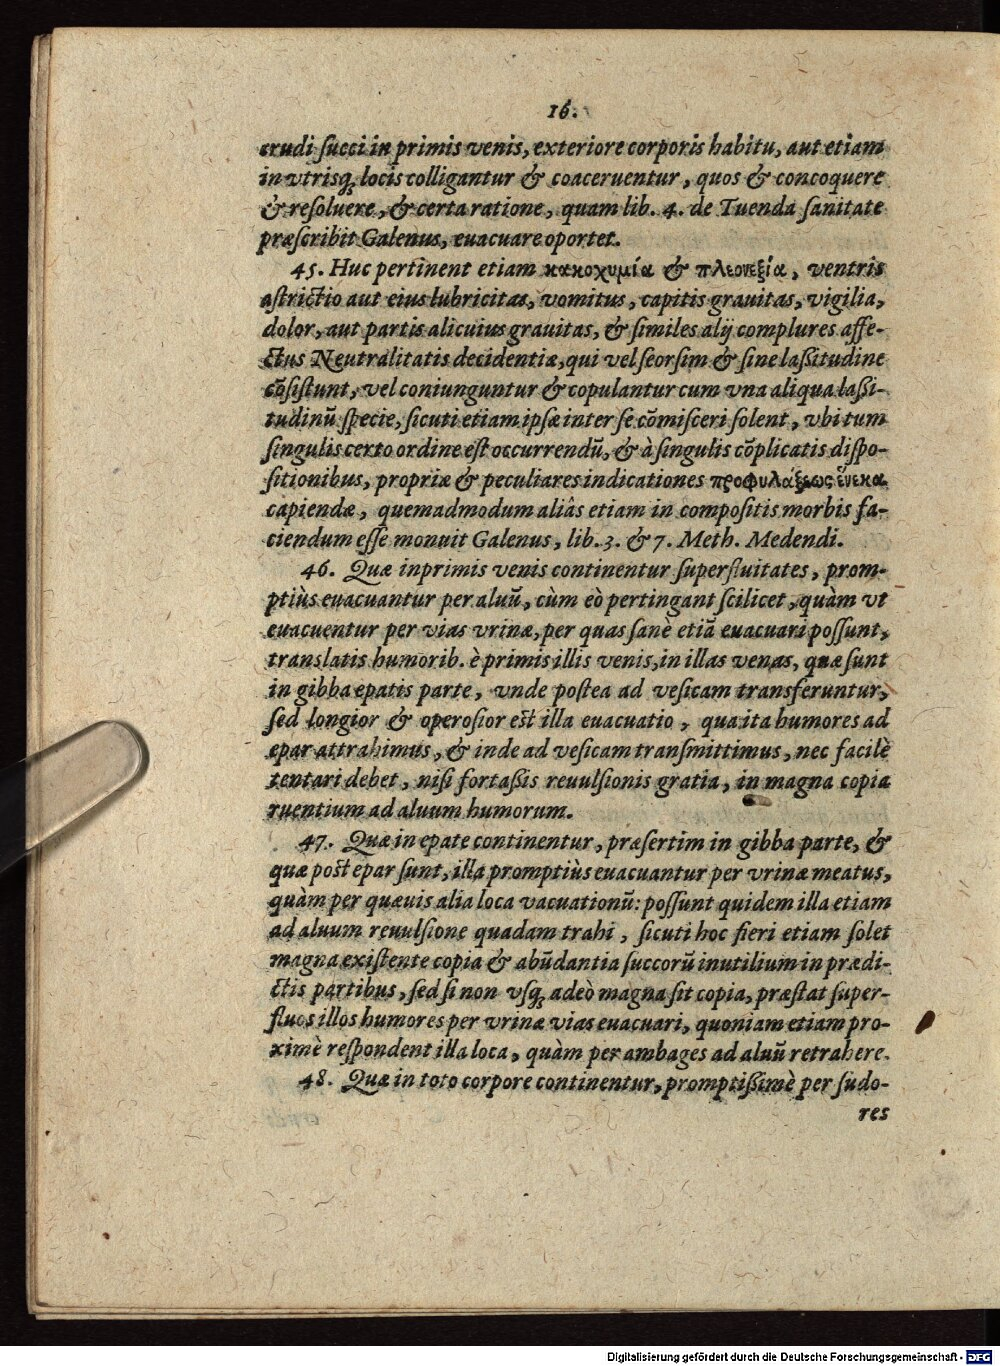 16.
crudi succi in primis venis, exteriore corporis habitu, aut etiam
in vtrisq́; locis colligantur & coaceruentur, quos & concoquere
& resoluere, & certa ratione, quam lib. 4. de Tuenda sanitate
præscribit Galenus, euacuare oportet.
45. Huc pertinent etiam κακοχυμία & πλεονεξία, ventris
astrictio aut eius lubricitas, vomitus, capitis grauitas, vigilia,
dolor, aut partis alicuius grauitas, & similes alij complures affe-
ctus Neutralitatis decidentiæ, qui vel seorsim & sine laßitudine
cõsistunt, vel coniunguntur & copulantur cum vna aliqua laßi-
tudinũ specie, sicuti etiam ipsæ inter se cõmisceri solent, vbi tum
singulis certo ordine est occurrendũ, & à singulis cõplicatis dispo-
sitionibus, propriæ & peculiares indicationes προφυλάξεως ἕνεκα
capiendæ, quemadmodum aliâs etiam in compositis morbis fa-
ciendum esse monuit Galenus, lib. 3. & 7. Meth. Medendi.
46. Quæ inprimis venis continentur superfluitates, prom-
ptiùs euacuantur per aluũ, cùm eò pertingant scilicet, quàm vt
euacuentur per vias vrinæ, per quas sanè etiã euacuari possunt,
translatis humorib. è primis illis venis, in illas venas, quæ sunt
in gibba epatis parte, vnde postea ad vesicam transferuntur,
sed longior & operosior est illa euacuatio, qua ita humores ad
epar attrahimus, & inde ad vesicam transmittimus, nec facilè
tentari debet, nisi fortaßis reuulsionis gratia, in magna copia
ruentium ad aluum humorum.
47. Quæ in epate continentur, præsertim in gibba parte, &
quæ post epar sunt, illa promptiùs euacuantur per vrinæ meatus,
quàm per quæuis alia loca vacuationũ: possunt quidem illa etiam
ad aluum reuulsione quadam trahi, sicuti hoc fieri etiam solet
magna existente copia & abũdantia succorũ inutilium in prædi-
ctis partibus, sed si non vsq́; adeò magna sit copia, præstat super-
fluos illos humores per vrinæ vias euacuari, quoniam etiam pro-
ximè respondent illa loca, quàm per ambages ad aluũ retrahere.
48. Quæ in toto corpore continentur, promptißimè per sudo-
res
Digitalisierung gefördert durch die Deutsche Forschungsgemeinschaft - DFG